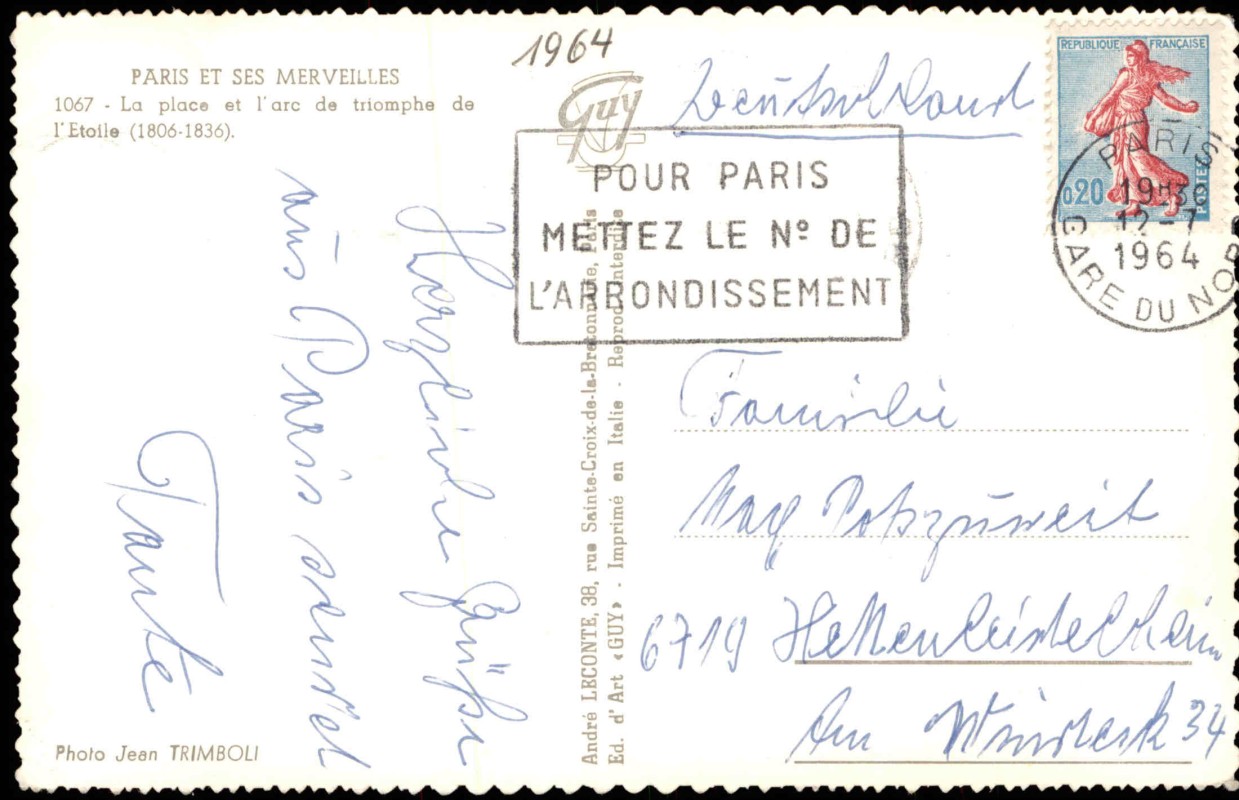 1964
PARIS ET SES MERVEILLES
1067 - La place et l'arc de triomphe de
l'Etoile (1806-1836).
Guy
Deutschland
REPUBLIQUE FRANÇAISE
0,20
POSTES
PARIS
19H30
12-7
1964
GARE DU NORD
POUR PARIS
METTEZ LE Nº DE
L'ARRONDISSEMENT
Herzliche Grüße
aus Paris sendet
Tante
André LECONTE, 38, rue Sainte-Croix-de-la-Bretonnerie, Paris
Ed. d'Art «GUY» - Imprimé en Italie - Reprod. interdite
Familie
Max
6719 Hettenleidelheim
Am Windeck 34
Photo Jean TRIMBOLI